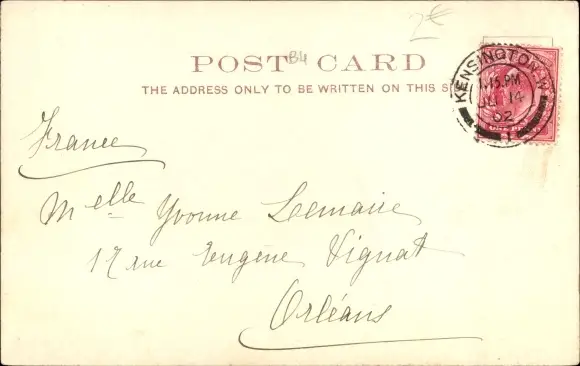 2€
POST CARD
B4
THE ADDRESS ONLY TO BE WRITTEN ON THIS S
KENSINGTON.W
.15.PM
14
02
1
France
Melle Yvonne Lemaire
17 rue Eugène Vignat
Orléans